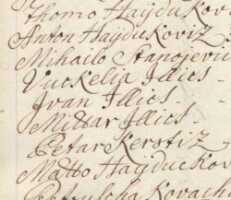 Thomo Hajduková
Anton Hajdukoviz
Mihailo Stanojevic
Vuckelia Illics
Ivan Illics
Mittar Illics
Petar Kerstiz
Matto Hajduckov
Kovach